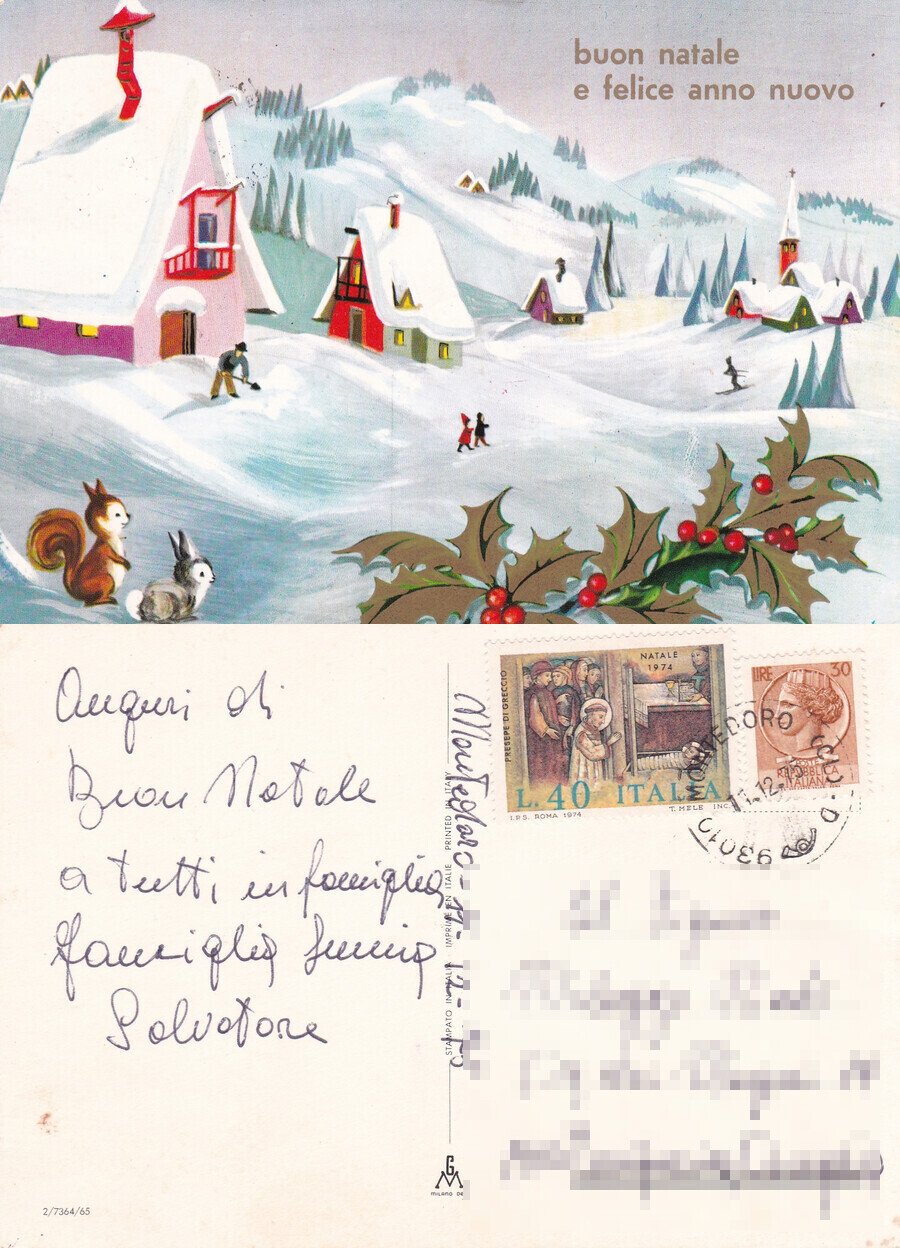 buon natale
e felice anno nuovo
Auguri di
Buon Natale
a tutti in famiglia
famiglia
Salvatore
Montedoro 11-12-
STAMPATO IN ITALIA IMPRIMÉ EN ITALIE PRINTED IN ITALY
PRESEPE DI GRECCIO
NATALE
1974
L. 40 ITALIA
I.P.S. ROMA 1974
T. MELE INC.
LIRE 30
POSTE
REPUBBLICA
ITALIANA
MONTEDORO
11.12.
93010
2/7364/65
MILANO